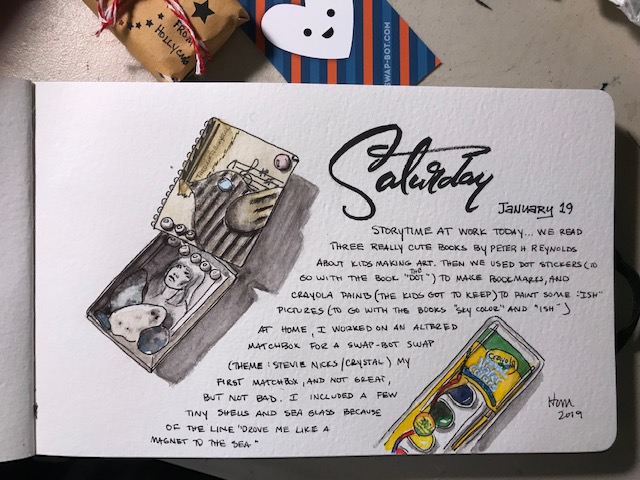 FROM
HOLLYCM
SWAP-BOT.COM
Saturday
JANUARY 19
STORYTIME AT WORK TODAY... WE READ
THREE REALLY CUTE BOOKS BY PETER H. REYNOLDS
ABOUT KIDS MAKING ART. THEN WE USED DOT STICKERS (TO
GO WITH THE BOOK "THE DOT") TO MAKE BOOKMARKS, AND
CRAYOLA PAINTS (THE KIDS GOT TO KEEP) TO PAINT SOME "ISH"
PICTURES (TO GO WITH THE BOOKS "SKY COLOR" AND "ISH")
AT HOME, I WORKED ON AN ALTERED
MATCHBOX FOR A SWAP-BOT SWAP
(THEME: STEVIE NICKS/CRYSTAL) MY
FIRST MATCHBOX, AND NOT GREAT,
BUT NOT BAD. I INCLUDED A FEW
TINY SHELLS AND SEA GLASS BECAUSE
OF THE LINE "DROVE ME LIKE A
MAGNET TO THE SEA"
Crayola
2019